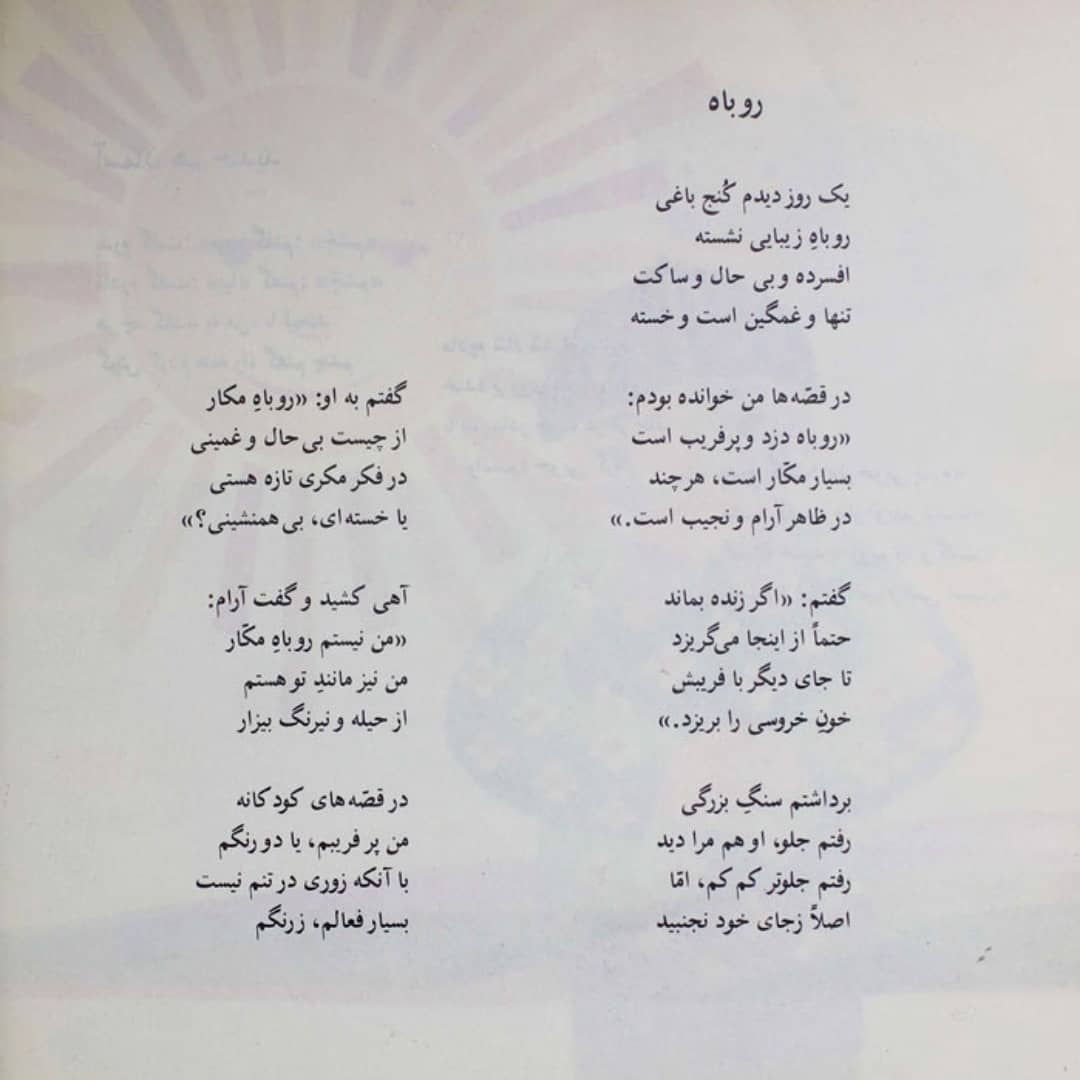 روباه
یک روز دیدم کُنج باغی
روباهِ زیبایی نشسته
افسرده و بی حال و ساکت
تنها و غمگین است و خسته
در قصّه ها من خوانده بودم:
«روباه دزد و پرفریب است
بسیار مکّار است، هر چند
در ظاهر آرام و نجیب است.»
گفتم: «اگر زنده بماند
حتماً از اینجا می‌گریزد
تا جای دیگر با فریبش
خونِ خروسی را بریزد.»
برداشتم سنگِ بزرگی
رفتم جلو، او هم مرا دید
رفتم جلوتر کم کم، امّا
اصلاً زجای خود نجنبید
گفتم به او: «روباهِ مکار
از چیست بی حال و غمینی
در فکر مکری تازه هستی
یا خسته ای، بی همنشینی؟»
آهی کشید و گفت آرام:
«من نیستم روباهِ مکّار
من نیز مانندِ تو هستم
از حیله و نیرنگ بیزار
در قصّه های کودکانه
من پر فریبم، یا دو رنگم
با آنکه زوری در تنم نیست
بسیار فعالم، زرنگم